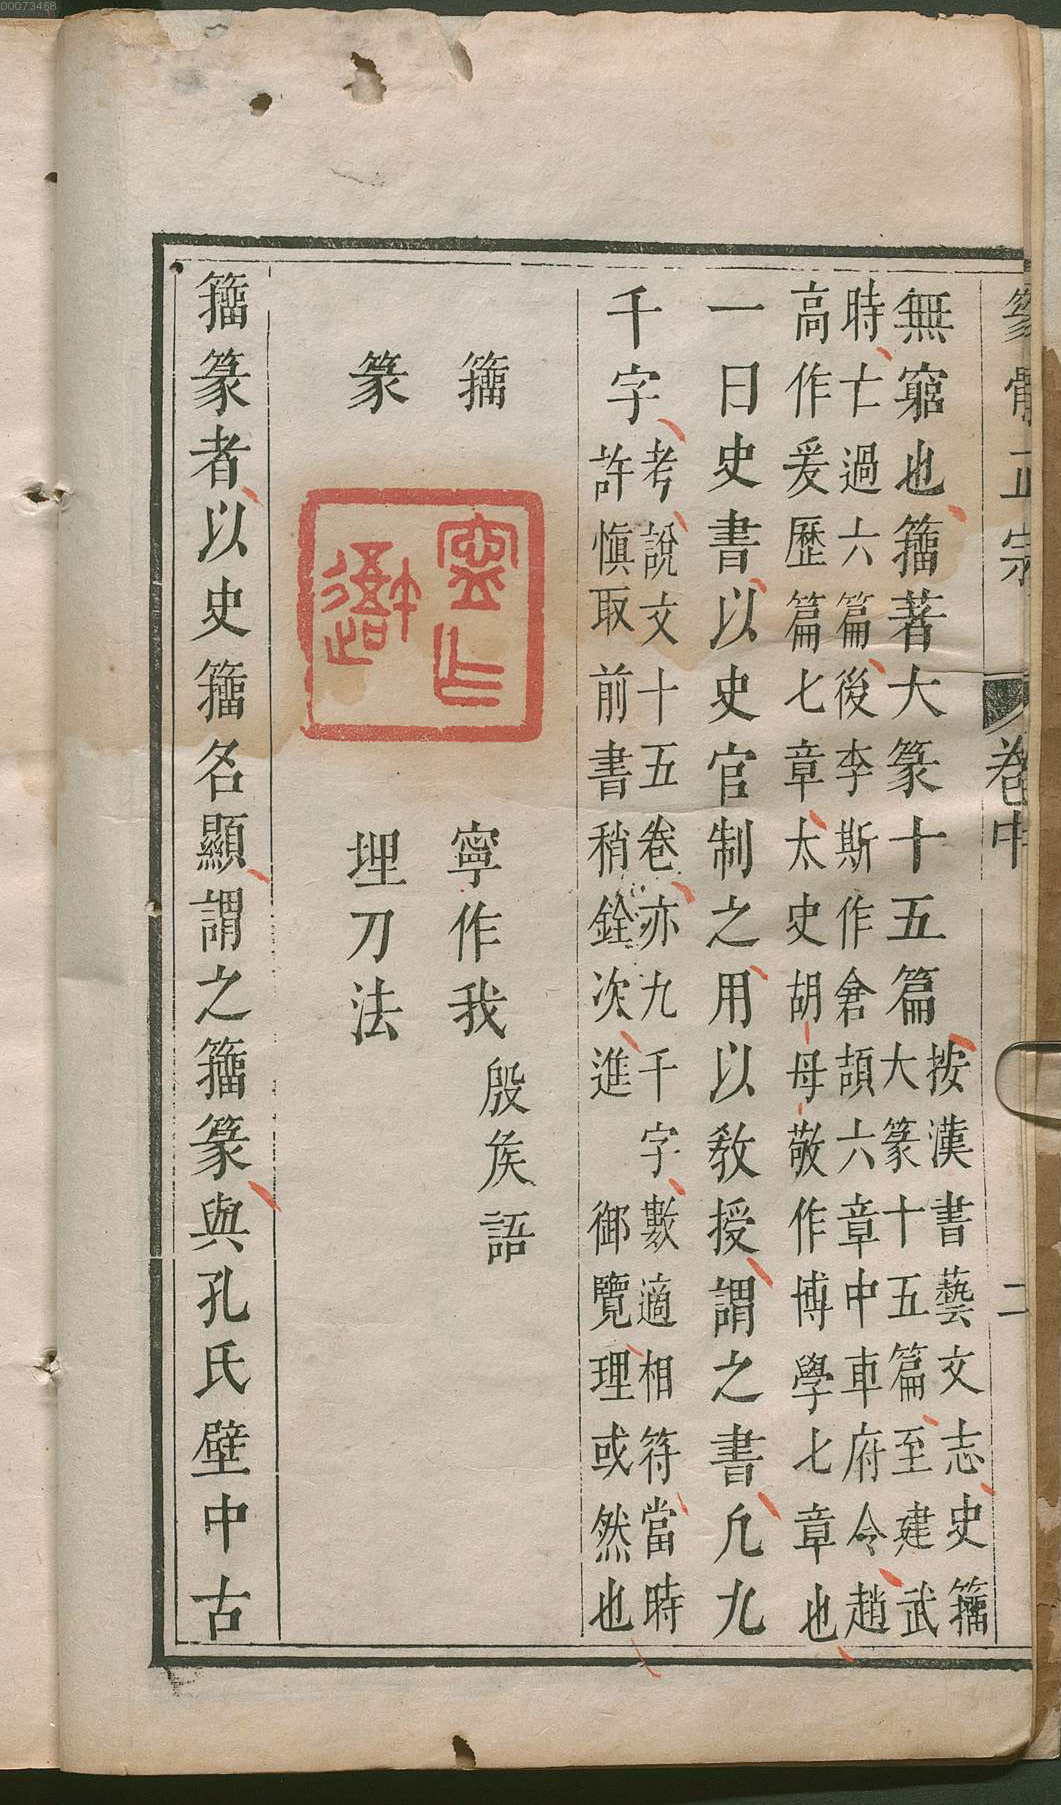 00073468
篆體正宗 卷中 二
無窮也籀著大篆十五篇
按漢書藝文志史籀
大篆十五篇至建武
時亡過六篇後李斯作倉頡六章中車府令趙
高作爰歷篇七章太史胡母敬作博學七章也
一曰史書以史官制之用以教授謂之書凡九
千字
考說文十五卷亦九千字數適相符當時
許慎取前書稍銓次進 御覽理或然也
籀 寧作我 殷矦語
篆 埋刀法
籀篆者以史籀名顯謂之籀篆與孔氏壁中古